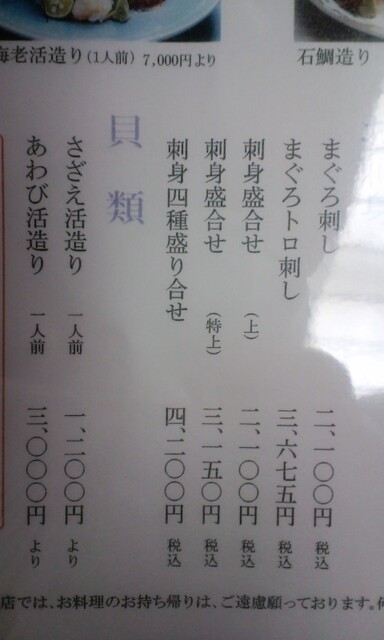 海老活造り(1人前) 7,000円より
石鯛造り
まぐろ刺し 二、一〇〇円 税込
まぐろトロ刺し 三、六七五円 税込
刺身盛合せ(上) 二、一〇〇円 税込
刺身盛合せ(特上) 三、一五〇円 税込
刺身四種盛り合せ 四、二〇〇円 税込
貝類
さざえ活造り 一人前 一、二〇〇円 より
あわび活造り 一人前 三、〇〇〇円 より
店では、お料理のお持ち帰りは、ご遠慮願っております。何